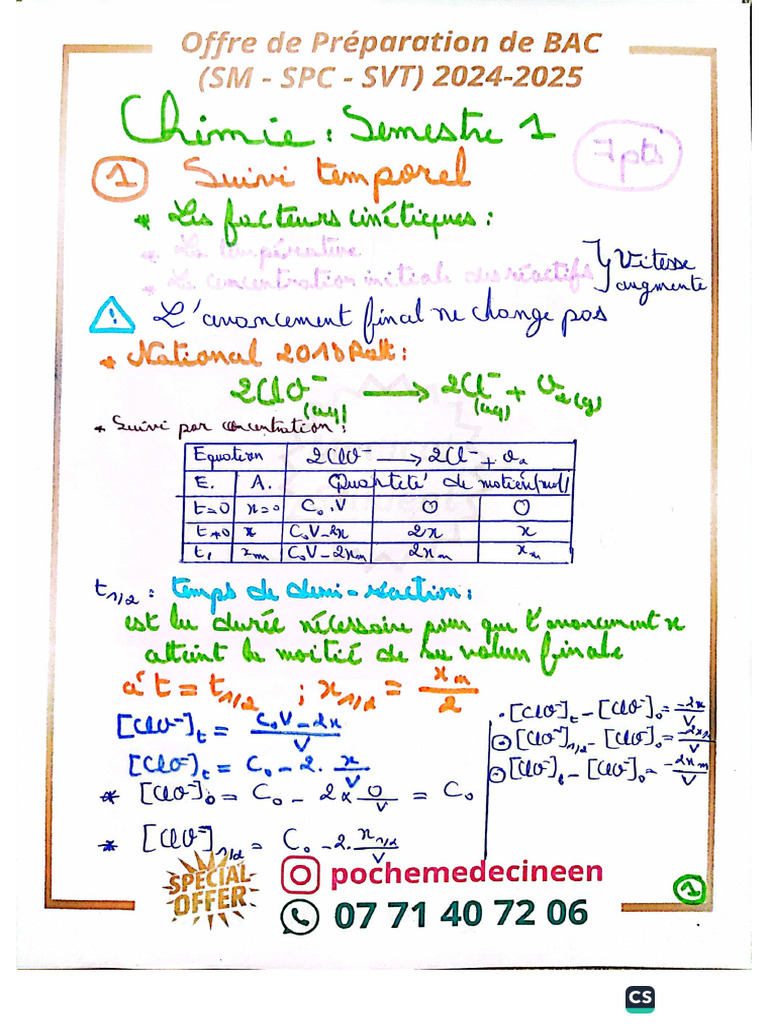 Offre de Préparation de BAC
(SM - SPC - SVT) 2024-2025
Chimie : Semestre 1
7pts
1 Suivi temporel
* Les facteurs cinétiques :
* La température
* La concentration initiale des réactifs
} Vitesse augmente
⚠ L'avancement final ne change pas
* National 2018 Ratt :
2ClO⁻(aq) → 2Cl⁻(aq) + O₂(g)
* Suivi par concentration :
Equation 2ClO⁻ → 2Cl⁻ + O₂
E. A. Quantité de matière(mol)
t=0 x=0 C₀.V 0 0
t≠0 x C₀V-2x 2x x
t₁ xm C₀V-2xm 2xm xm
t1/2 : temps de demi-réaction :
est la durée nécessaire pour que l'avancement x
atteint la moitié de sa valeur finale
à t = t1/2 ; x1/2 = xm/2
[ClO⁻]t = (C₀V - 2x)/V
[ClO⁻]t = C₀ - 2.x/V
* [ClO⁻]₀ = C₀ - 2×0/V = C₀
* [ClO⁻]1/2 = C₀ - 2.x1/2/V
• [ClO⁻]t - [ClO⁻]₀ = -2x/V
[ClO⁻]1/2 - [ClO⁻]₀ = -2x1/2/V
[ClO⁻]f - [ClO⁻]₀ = -2xm/V
SPECIAL
OFFER
pochemedecineen
07 71 40 72 06
1
CS